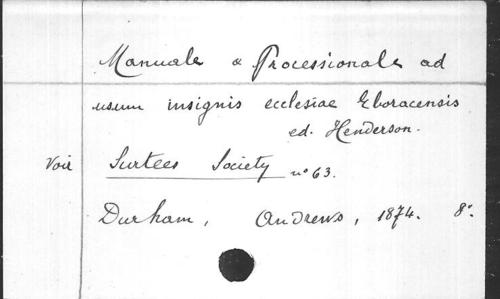 Manuale & Processionale ad
usum insignis ecclesiae Eboracensis
ed. Henderson.
Voir Surtees Society no 63.
Durham, Andrews, 1874. 8º.